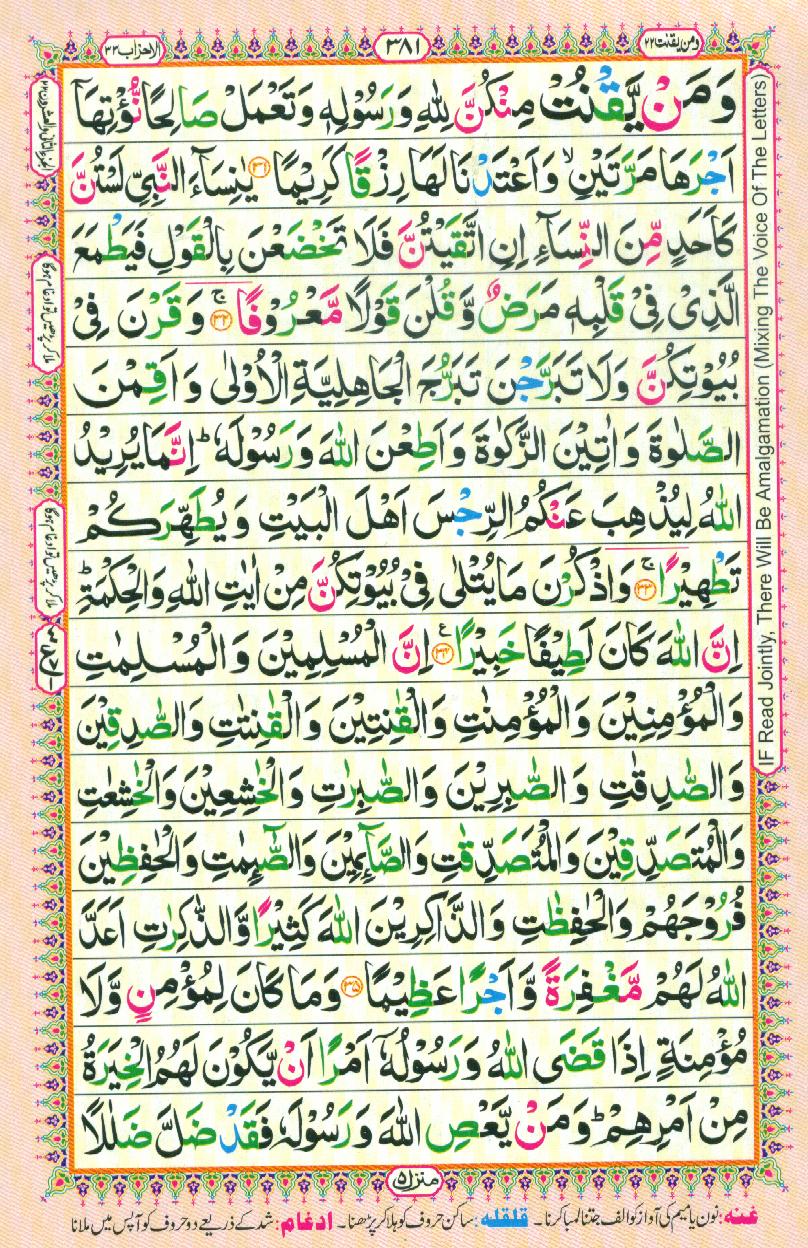 ومن يقنت ٢٢
٣٨١
الاحزاب ٣٣
وَمَنْ يَّقْنُتْ مِنْكُنَّ لِلّٰهِ وَرَسُوْلِهٖ وَتَعْمَلْ صَالِحًا نُّؤْتِهَاۤ
اَجْرَهَا مَرَّتَيْنِ ۙ وَاَعْتَدْنَا لَهَا رِزْقًا كَرِيْمًا ﴿۳۱﴾ يٰنِسَآءَ النَّبِىِّ لَسْتُنَّ
كَاَحَدٍ مِّنَ النِّسَآءِ اِنِ اتَّقَيْتُنَّ فَلَا تَخْضَعْنَ بِالْقَوْلِ فَيَطْمَعَ
الَّذِىْ فِىْ قَلْبِهٖ مَرَضٌ وَّقُلْنَ قَوْلًا مَّعْرُوْفًا ۚ﴿۳۲﴾ وَقَرْنَ فِىْ
بُيُوْتِكُنَّ وَلَا تَبَرَّجْنَ تَبَرُّجَ الْجَاهِلِيَّةِ الْاُوْلٰى وَاَقِمْنَ
الصَّلٰوةَ وَاٰتِيْنَ الزَّكٰوةَ وَاَطِعْنَ اللّٰهَ وَرَسُوْلَهٗ ؕ اِنَّمَا يُرِيْدُ
اللّٰهُ لِيُذْهِبَ عَنْكُمُ الرِّجْسَ اَهْلَ الْبَيْتِ وَيُطَهِّرَكُمْ
تَطْهِيْرًا ۚ﴿۳۳﴾ وَاذْكُرْنَ مَا يُتْلٰى فِىْ بُيُوْتِكُنَّ مِنْ اٰيٰتِ اللّٰهِ وَالْحِكْمَةِ ؕ
اِنَّ اللّٰهَ كَانَ لَطِيْفًا خَبِيْرًا ﴿۳۴﴾ ع اِنَّ الْمُسْلِمِيْنَ وَالْمُسْلِمٰتِ
وَالْمُؤْمِنِيْنَ وَالْمُؤْمِنٰتِ وَالْقٰنِتِيْنَ وَالْقٰنِتٰتِ وَالصّٰدِقِيْنَ
وَالصّٰدِقٰتِ وَالصّٰبِرِيْنَ وَالصّٰبِرٰتِ وَالْخٰشِعِيْنَ وَالْخٰشِعٰتِ
وَالْمُتَصَدِّقِيْنَ وَالْمُتَصَدِّقٰتِ وَالصَّآئِمِيْنَ وَالصّٰٓئِمٰتِ وَالْحٰفِظِيْنَ
فُرُوْجَهُمْ وَالْحٰفِظٰتِ وَالذَّاكِرِيْنَ اللّٰهَ كَثِيْرًا وَّالذّٰكِرٰتِ اَعَدَّ
اللّٰهُ لَهُمْ مَّغْفِرَةً وَّاَجْرًا عَظِيْمًا ﴿۳۵﴾ وَمَا كَانَ لِمُؤْمِنٍ وَّلَا
مُؤْمِنَةٍ اِذَا قَضَى اللّٰهُ وَرَسُوْلُهٗۤ اَمْرًا اَنْ يَّكُوْنَ لَهُمُ الْخِيَرَةُ
مِنْ اَمْرِهِمْ ؕ وَمَنْ يَّعْصِ اللّٰهَ وَرَسُوْلَهٗ فَقَدْ ضَلَّ ضَلٰلًا
IF Read Jointly, There Will Be Amalgamation (Mixing The Voice Of The Letters)
ملا کر پڑھیں تو ادغام ہوگا
ملا کر پڑھیں تو ادغام ہوگا
منزل ٥
غنه: نون یا میم کی آواز کو الف جتنا لمبا کرنا۔ قلقله: ساکن حروف کو ہلا کر پڑھنا۔ ادغام: شد کے ذریعے دو حروف کو آپس میں ملانا